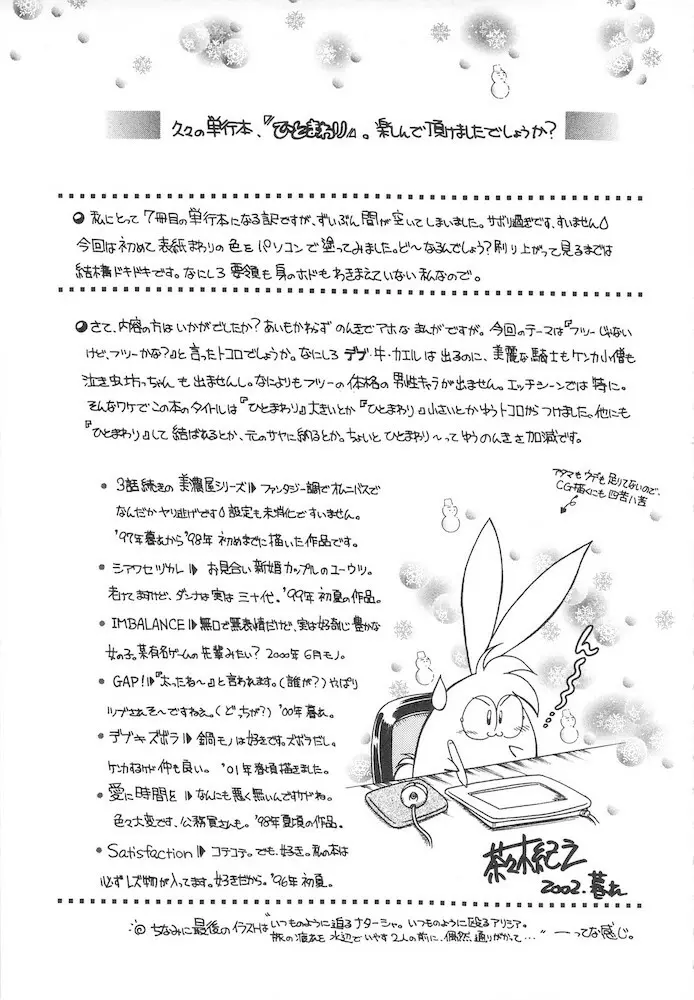 久々の単行本、『ひとまわり』。楽しんで頂けましたでしょうか?
私にとって7冊目の単行本になる訳ですが、ずいぶん間が空いてしまいました。サボリ過ぎです、すいません
今回は初めて表紙まわりの色をパソコンで塗ってみました。ど〜なるんでしょう?刷り上がって見るまでは
結構ドキドキです。なにしろ要領も身のホドもわきまえていない私なので。
さて、内容の方はいかがでしたか?あいもかわらずのんきでアホなまんがですが。今回のテーマは『フツーじゃない
けど、フツーかな?』と言ったトコロでしょうか。なにしろデブ・牛・カエルは出るのに、美麗な騎士もケンカ小僧も
泣き虫坊っちゃんも出ませんし。なによりもフツーの体格の男性キャラが出ません。エッチシーンでは特に。
そんなワケでこの本のタイトルは『ひとまわり』大きいとか『ひとまわり』小さいとかゆうトコロからつけました。他にも
『ひとまわり』して結ばれるとか、元のサヤに納るとか。ちょいとひとまわり〜ってゆうのんきさ加減です。
アタマもウデも足りてないので、
CG描くにも四苦八苦
3話続きの美濃屋シリーズ ファンタジー調でオムニバスで
なんだかヤリ逃げです 設定も未消化ですいません。
'97年暮れから'98年初めまでに描いた作品です。
シアワセヅカレ お見合い新婚カップルのユーウツ。
老けてますけど、ダンナは実は三十代。'99年初夏の作品。
IMBALANCE 無口で無表情だけど、実は好奇心豊かな
女の子。某有名ゲームの先輩みたい?2000年6月モノ。
GAP! 『太ったね〜』と言われます。(誰が?)やっぱり
ツブされそ〜ですねえ。(どっちが?)'00年暮れ。
デブキズボラ 鍋モノは好きです。ズボラだし。
ケンカするけど仲も良い。'01年春頃描きました。
愛に時間を なんにも悪く無いんですけどね。
色々大変です、公務員さんも。'98年夏頃の作品。
Satisfaction コテコテ。でも、好き。私の本は
必ずレズ物が入ってます。好きだから。'96年初夏。
ん〜
茶々木紀之
2002.暮れ
ちなみに最後のイラストは"いつものように迫るナターシャ。いつものように殴るアリシア。
旅の疲れを水辺でいやす2人の前に、偶然通りがかって…"ーってな感じ。